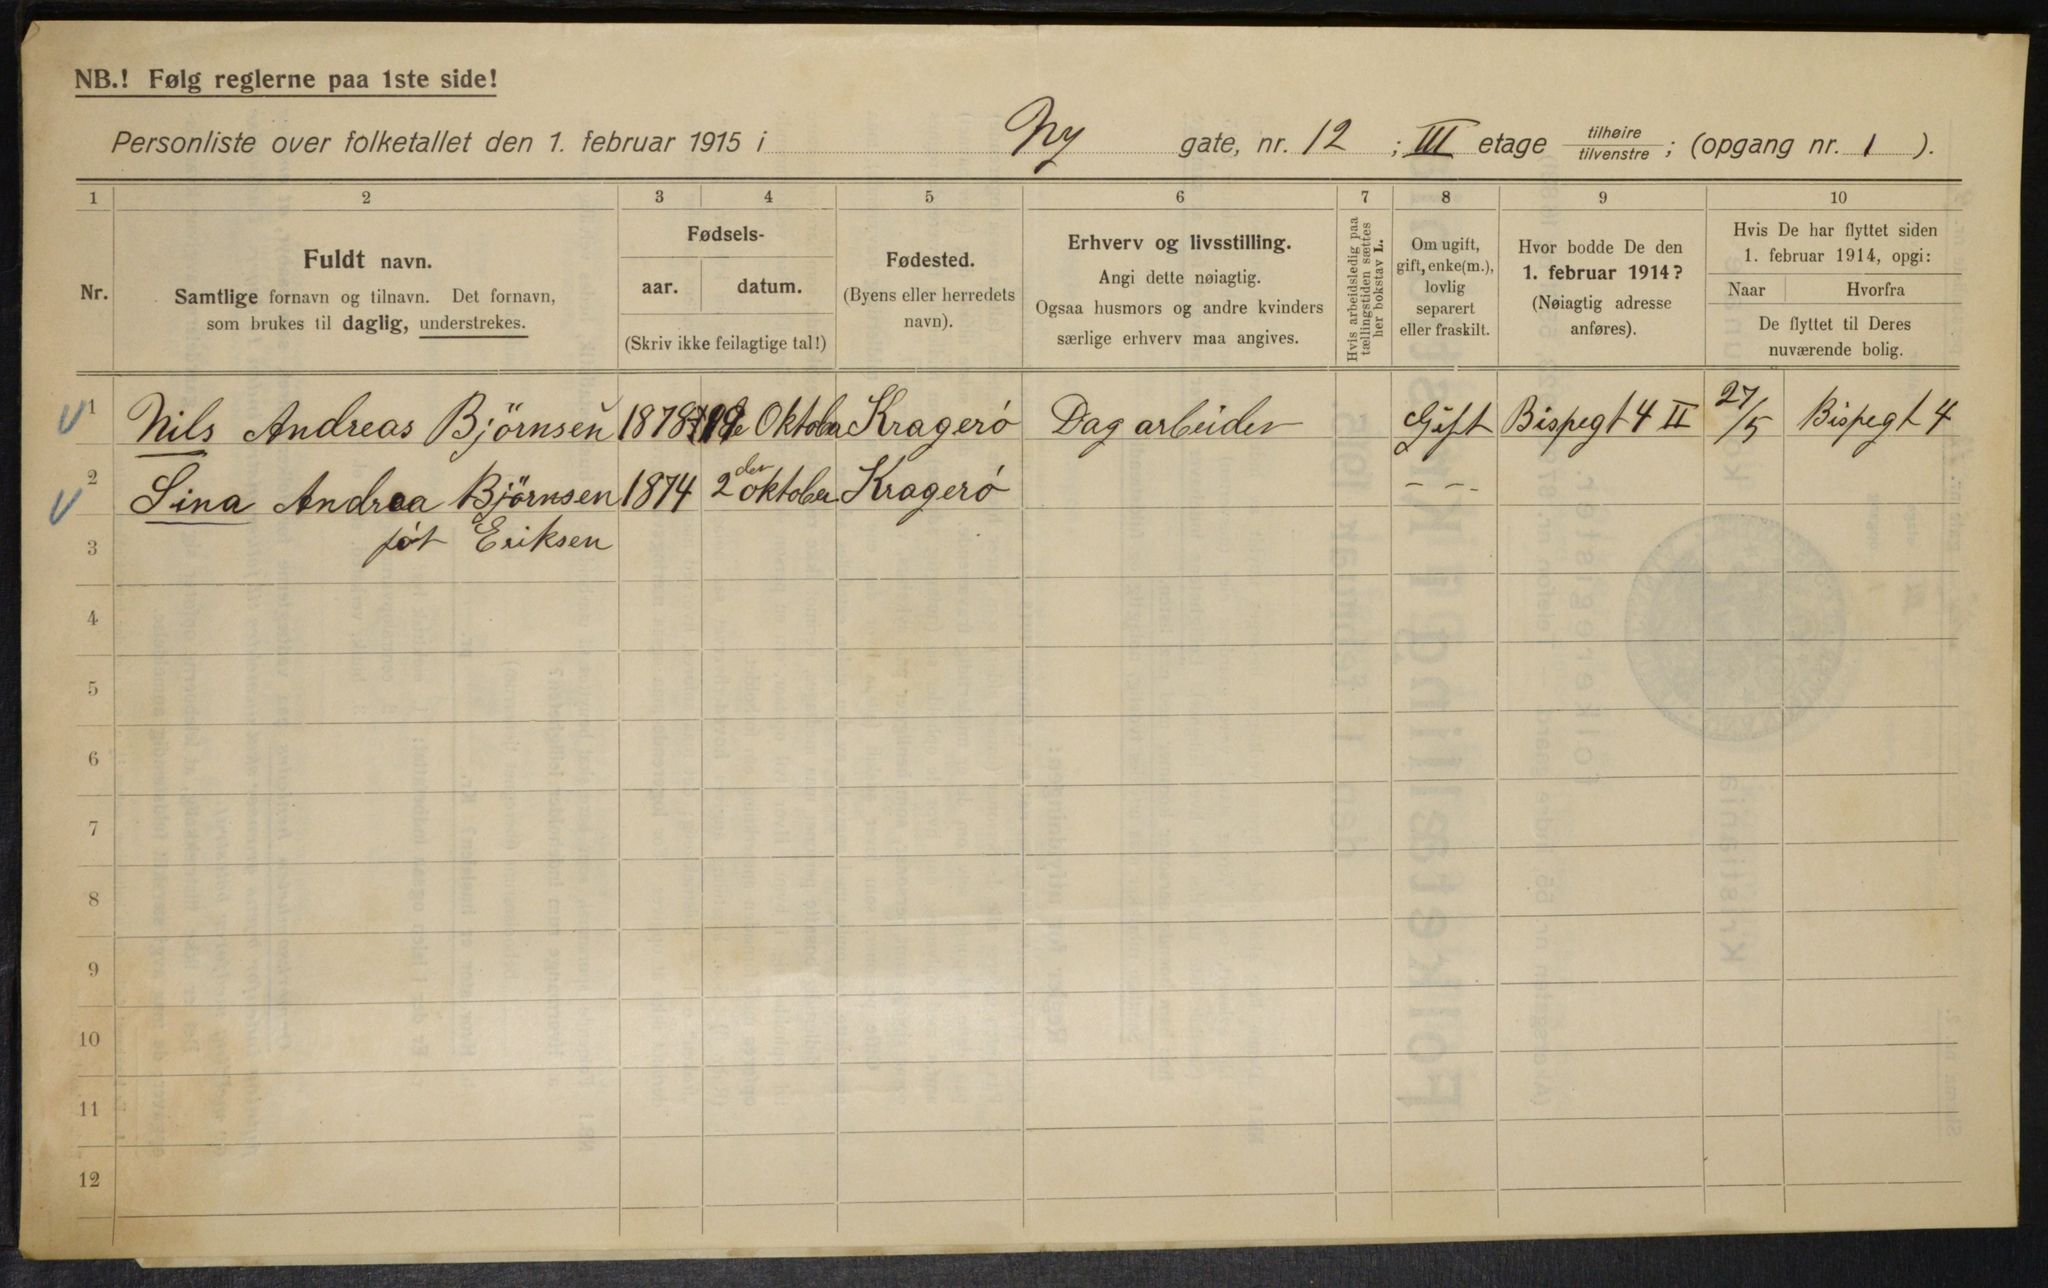 NB.! Følg reglerne paa 1ste side!
Personliste over folketallet den 1. februar 1915 i Ny gate, nr. 12 ; III etage tilhøire / tilvenstre ; (opgang nr. 1 ).
1 2 3 4 5 6 7 8 9 10
Nr.
Fuldt navn.
Samtlige fornavn og tilnavn. Det fornavn,
som brukes til daglig, understrekes.
Fødsels-
aar. datum.
(Skriv ikke feilagtige tal!)
Fødested.
(Byens eller herredets
navn).
Erhverv og livsstilling.
Angi dette nøiagtig.
Ogsaa husmors og andre kvinders
særlige erhverv maa angives.
Hvis arbeidsledig paa
tællingstiden sættes
her bokstav L.
Om ugift,
gift, enke(m.),
lovlig
separert
eller fraskilt.
Hvor bodde De den
1. februar 1914?
(Nøiagtig adresse
anføres).
Hvis De har flyttet siden
1. februar 1914, opgi:
Naar Hvorfra
De flyttet til Deres
nuværende bolig.
1 Nils Andreas Björnsen 1878 Oktober Kragerø Dagarbeider Gift Bispegt 4 II 27/5 Bispegt 4
2 Sina Andrea Björnsen 1874 2den oktober Kragerø - - -
føt Eriksen
3
4
5
6
7
8
9
10
11
12